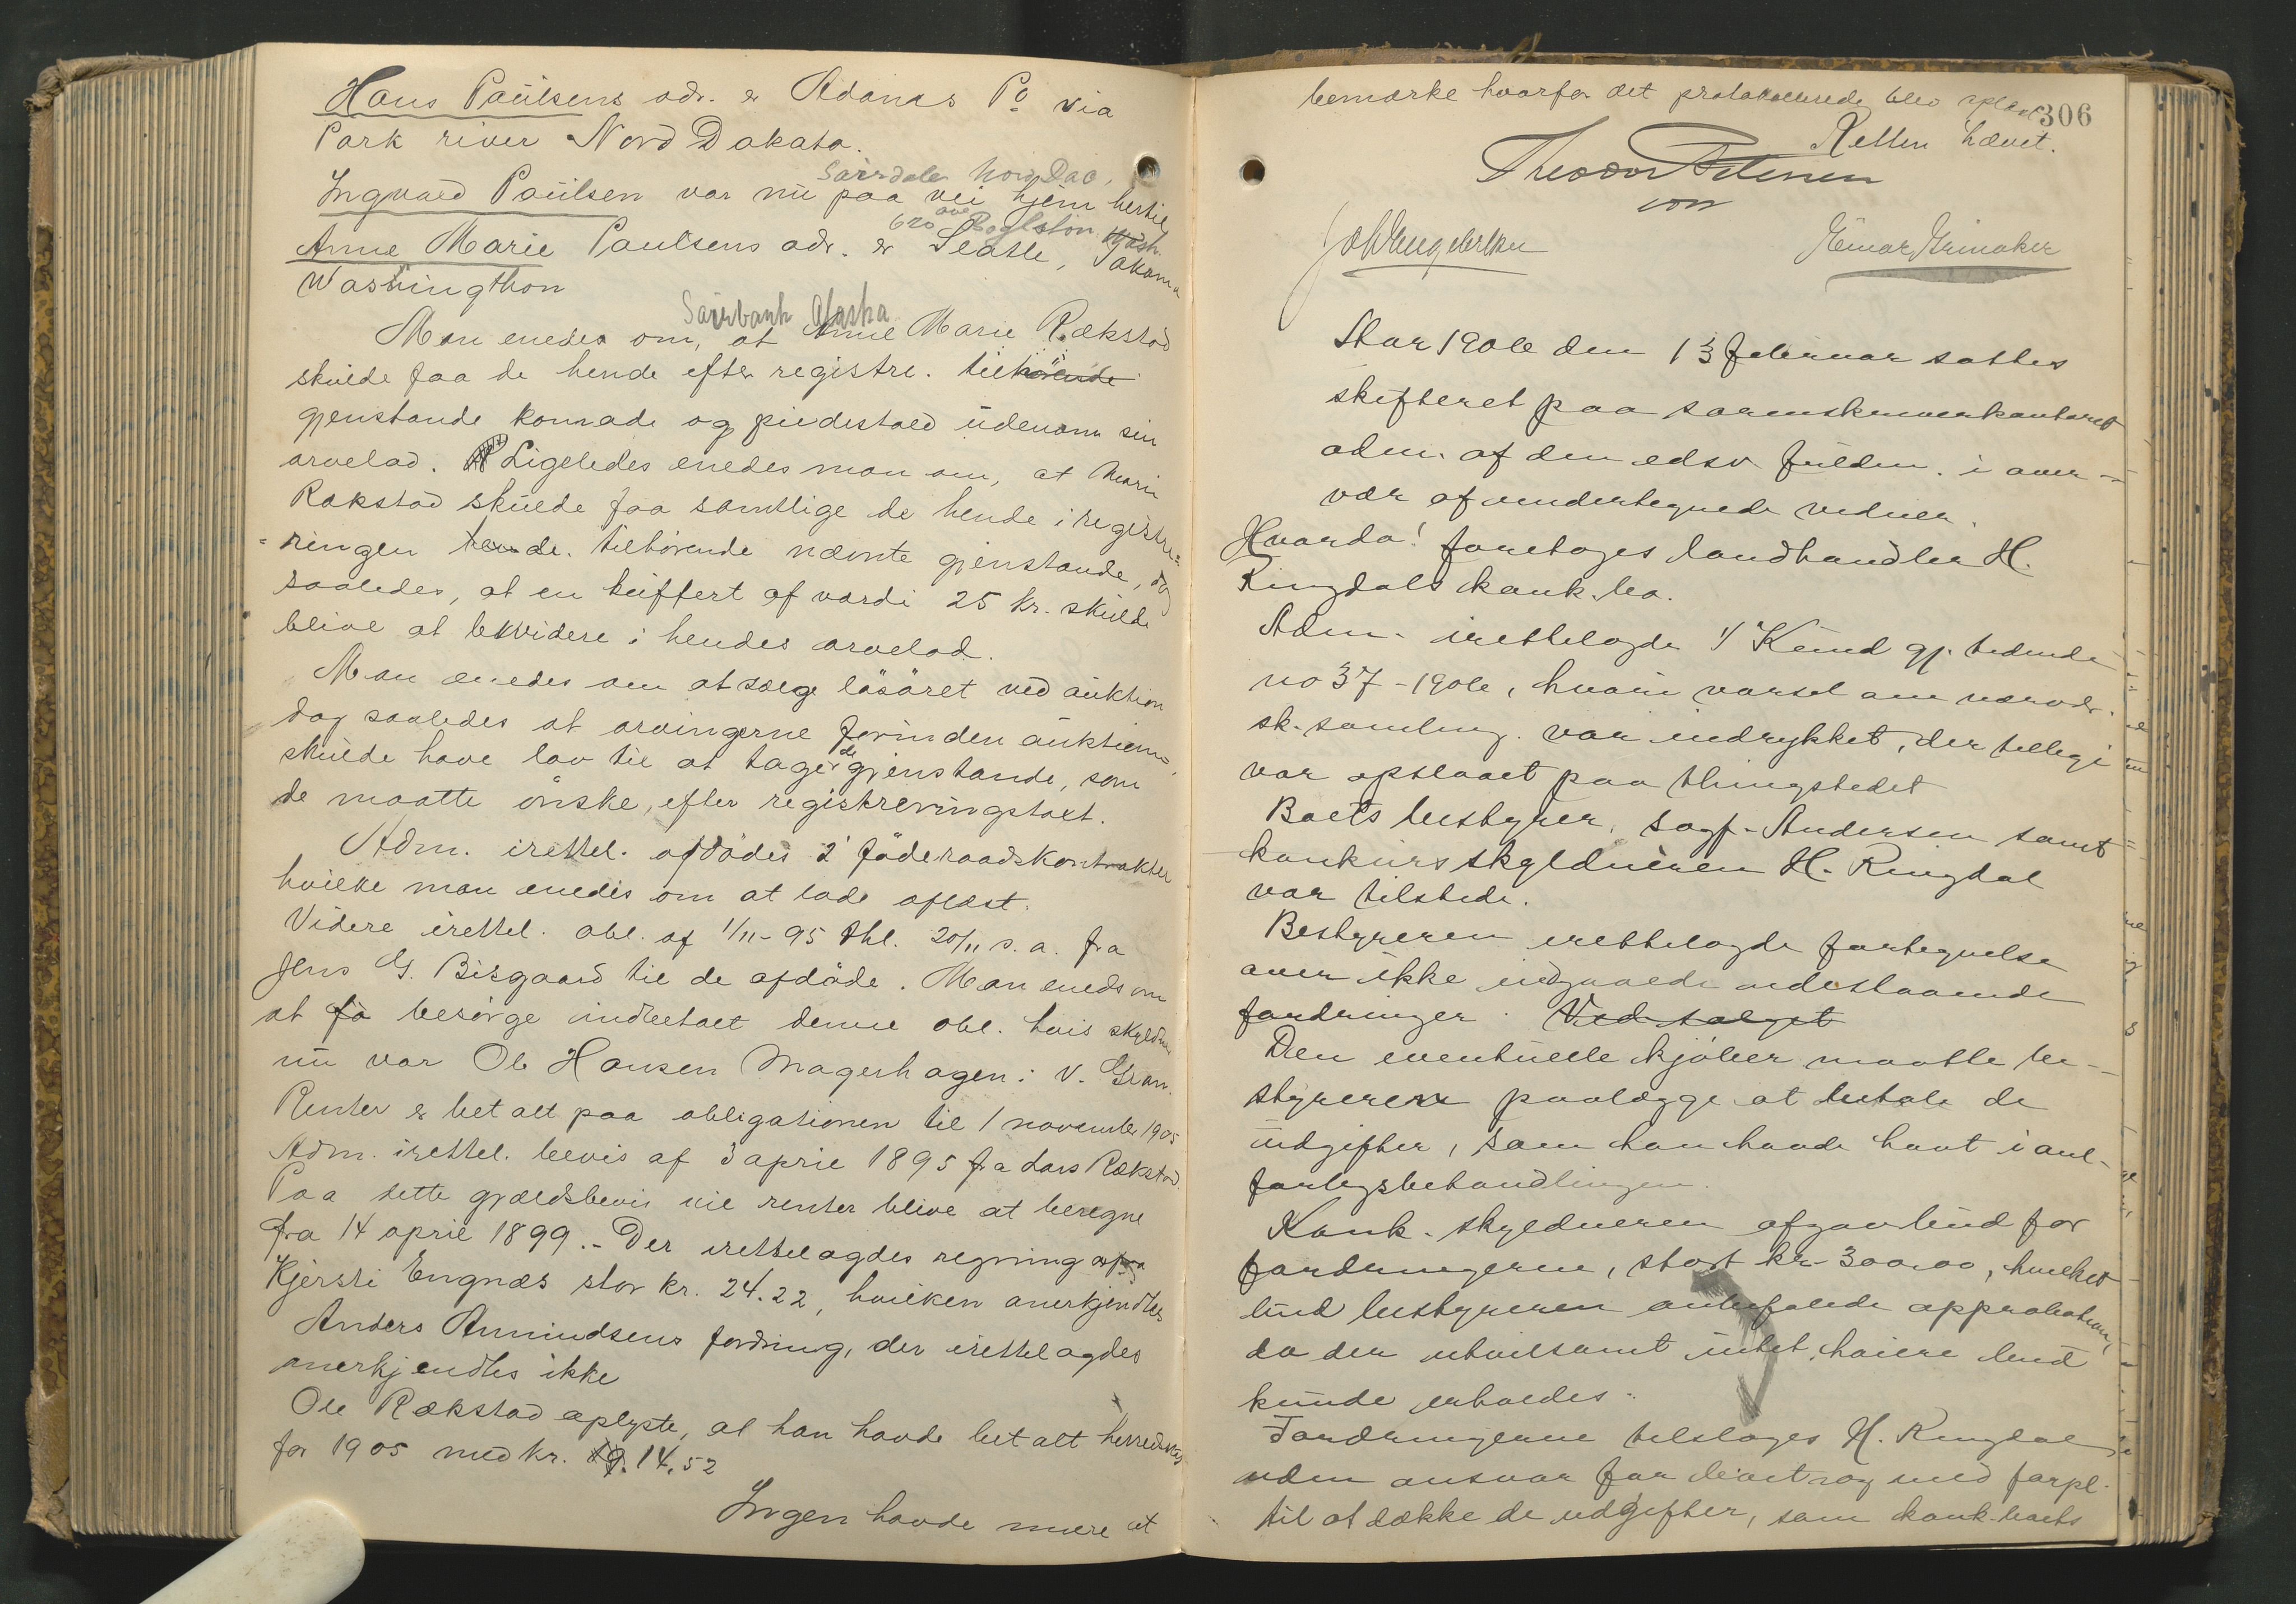 Hans Paulsens adr. er Adams Po via
Park river Nord Dakata.
Nord Dac.
Ingvald Paulsen var nu paa vei hjem hertil
620 ave Wash.
Anne Marie Paulsens adr. er Seatle, Takoma
Washingthon
Alaska
Man enedes om, at Anne Marie Rækstad
skulde faa de hende efter registre. tilhørende
gjenstande komade og piedestald udenom sin
arvelod. Ligeledes enedes man om, at Marie
Rækstad skulde faa samtlige de hende i registre=
=ringen tilhørende nævnte gjenstande, dog
saaledes, at en buffert af værdi 25 kr. skulde
blive at likvidere i hendes arvelod.
Man enedes om at sælge løsøret ved auktion
dog saaledes at arvingerne forinden auktion
skulde have lov til at tage de gjenstande, som
de maatte ønske, efter registreringstaxt.
Adm. irettel. afdødes 2 føderaadskontrakter
hvilke man enedes om at lade aflæst.
Videre irettel. obl. af 1/11-95 thl. 20/11 s. a. fra
Jens G. Bisgaard til de afdøde. Man enedes om
at få besørge indbetalt denne obl. hvis skyldner
nu var Ole Hansen Magerhagen i V. Gran.
Renter er betalt paa obligationen til 1 november 1905
Adm. irettel. bevis af 3 april 1895 fra Lars Rækstad
Paa dette gjældsbevis vil renter blive at beregne
fra 14 april 1899.- Der irettelagdes regning fra
Kjersti Engnæs stor kr. 24.22, hvilken anerkjendtes
Anders Amundsens fordring, der irettelagdes
anerkjendtes ikke
Ole Rækstad oplyste, at han havde betalt herredsskat
for 1905 med kr. 14.52
Ingen havde mere at
306
bemærke hvorfor det protokollerede blev oplæst
Retten hævet.
Theodor Petersen
con
Joh Engebretsen
Einar Grinaker
Aar 1906 den 13 februar sattes
skifteret paa sorenskriverkontoret
adm. af den edsv fuldm. i over-
vær af undertegnede vidner.
Hvorda! foretoges landhandler H.
Ringdals konk.bo.
Adm. irettelagde 1/ Kund gj. tidende
no 37-1906, hvori varsel om nærvær.
sk. samling. var indrykket, der tillige
var opslaaet paa thingstedet
Boets bestyrer, sagf. Andersen samt
konkursskyldneren H. Ringdal
var tilstede.
Bestyreren irettelagde fortegnelse
over ikke indgaaede udestaaende
fordringer. Ved salget
Den eventuelle kjøber maatte be-
styreren paalægge at betale de
udgifter, som han havde havt i anl.
forligsbehandlingen.
Konk. skyldneren afgav bud for
fordringerne, stort kr. 300.00, hvilket
bud bestyreren anbefalede approbation,
da der utvilsomt intet høiere bud
kunde erholdes.
Fordringerne tilsloges H. Ringdal
uden ansvar for boet og med forpl.
til at dække de udgifter, som konk.boets